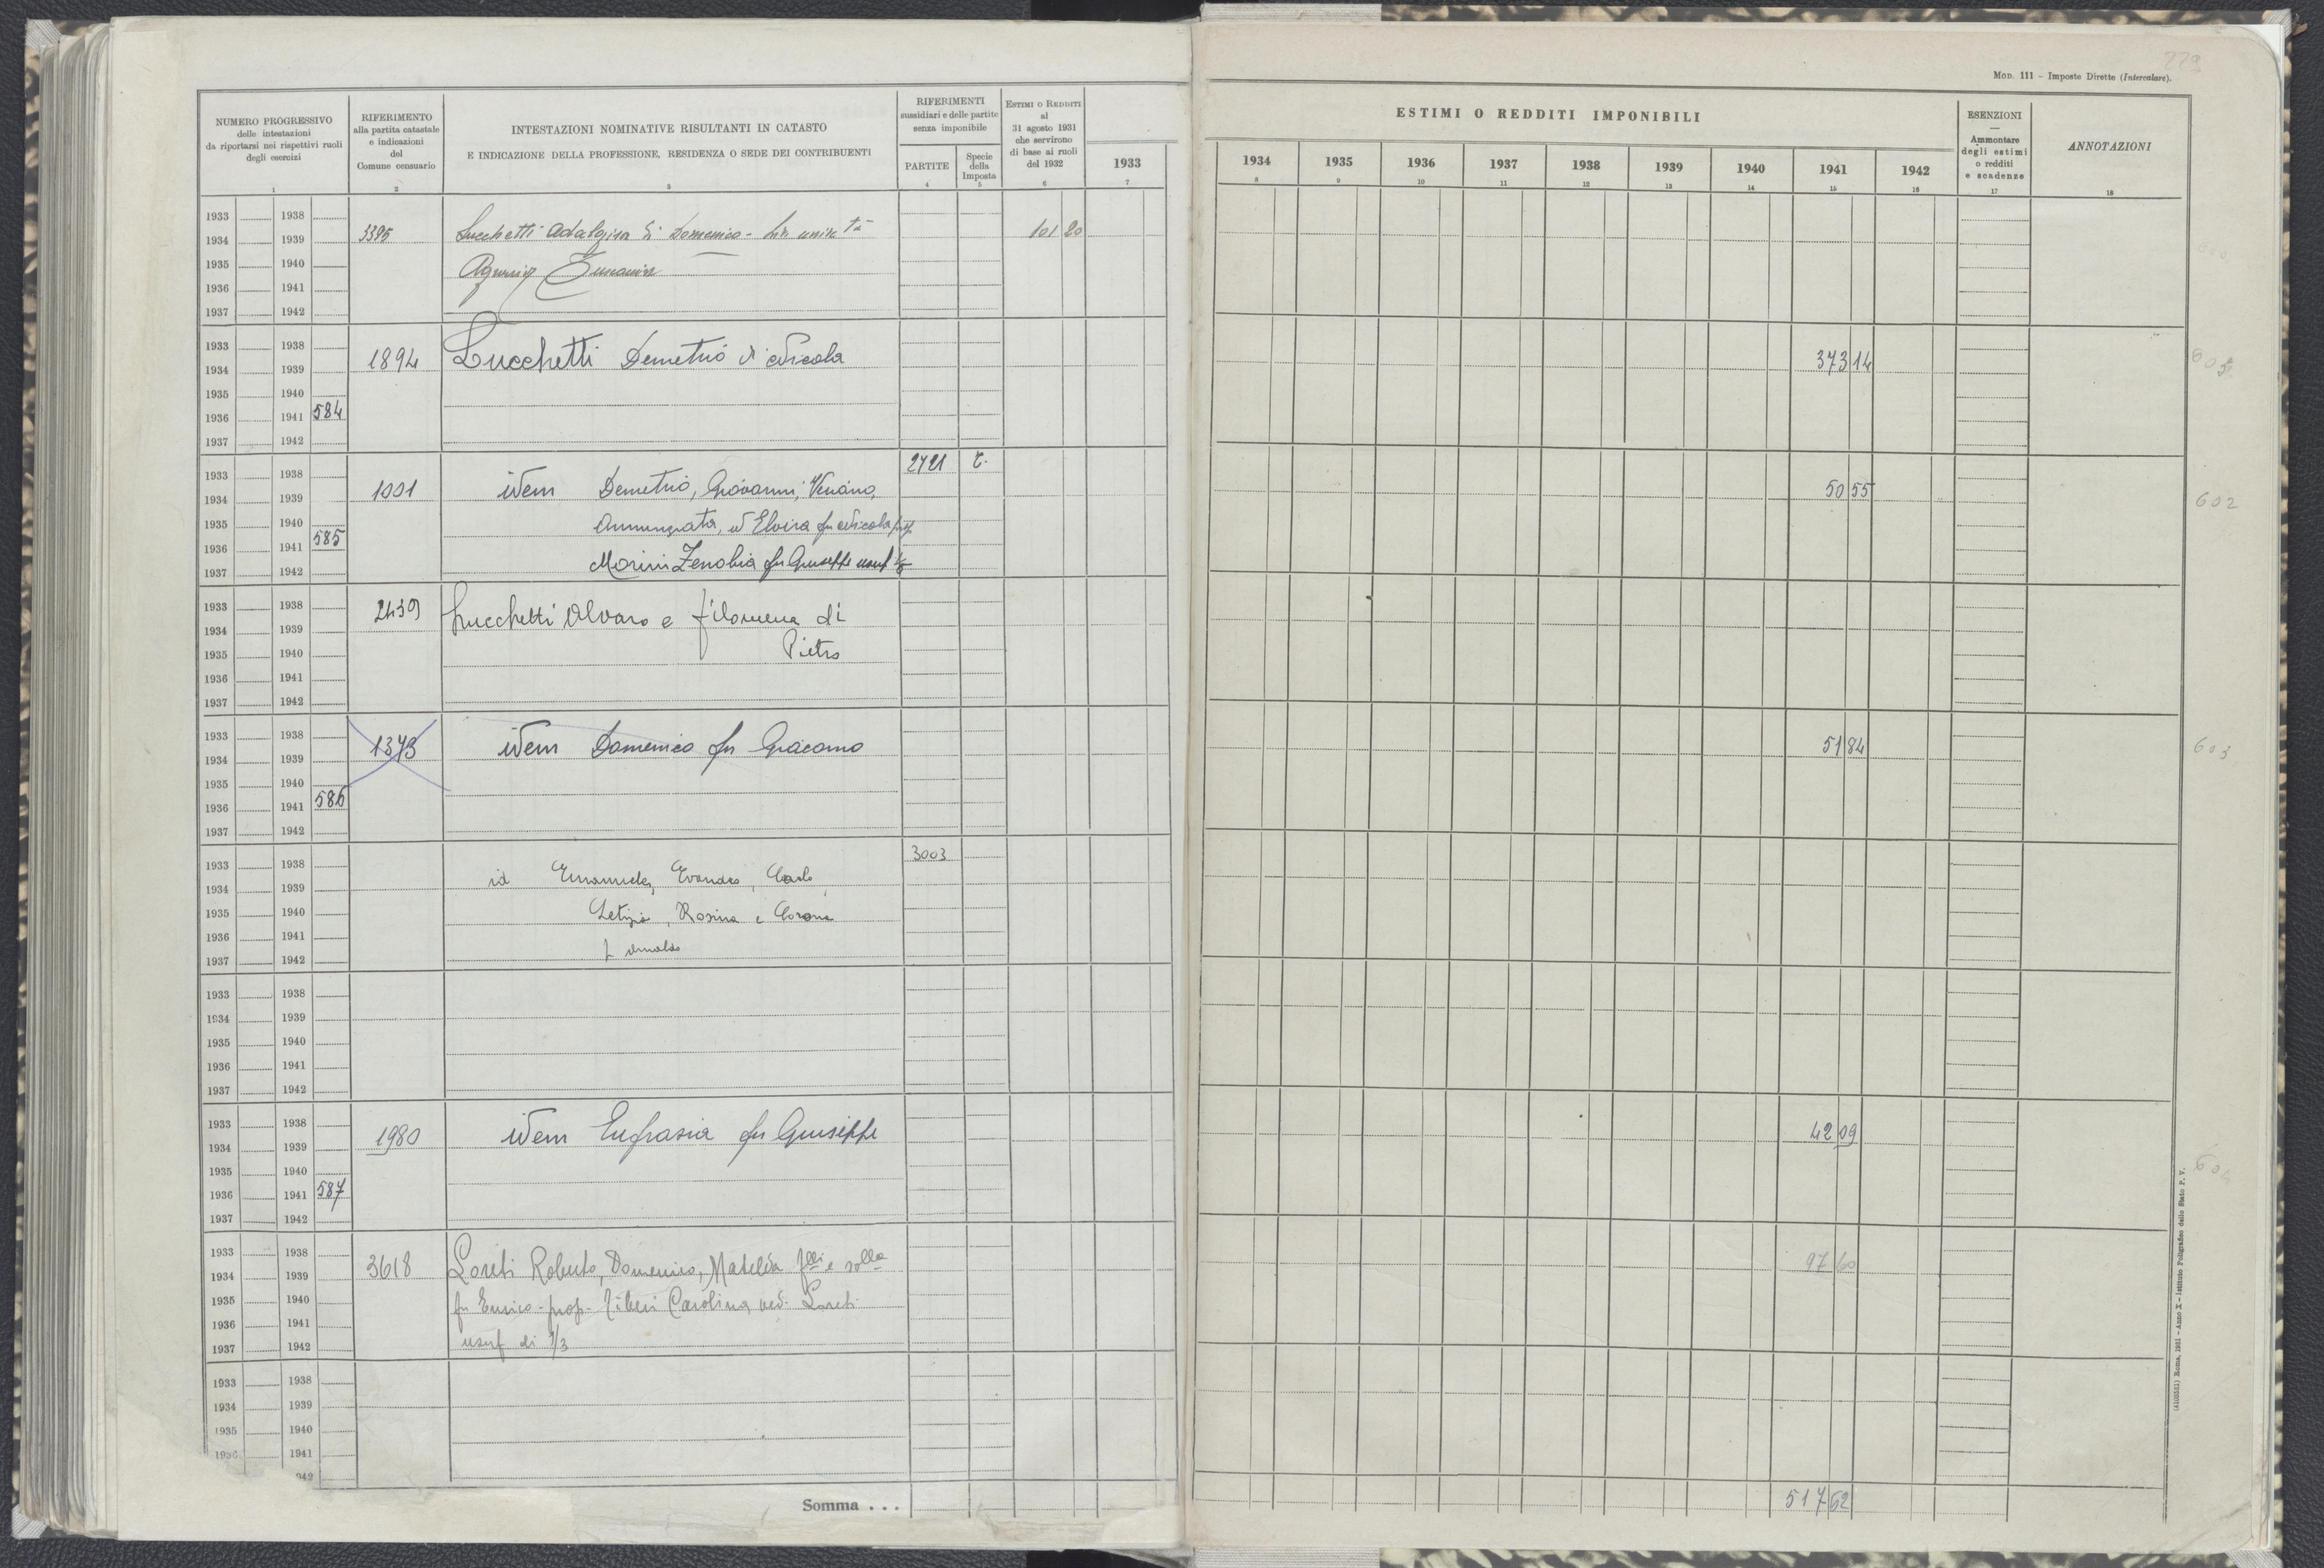 229
Mod. 111 – Imposte Dirette (Intercalare).
NUMERO PROGRESSIVO
delle intestazioni
da riportarsi nei rispettivi ruoli
degli esercizi
1
RIFERIMENTO
alla partita catastale
e indicazioni
del
Comune censuario
2
INTESTAZIONI NOMINATIVE RISULTANTI IN CATASTO
E INDICAZIONE DELLA PROFESSIONE, RESIDENZA O SEDE DEI CONTRIBUENTI
3
RIFERIMENTI
sussidiari e delle partite
senza imponibile
PARTITE
4
Specie
della
Imposta
5
Estimi o Redditi
al
31 agosto 1931
che servirono
di base ai ruoli
del 1932
6
1933
7
ESTIMI O REDDITI IMPONIBILI
1934 1935 1936 1937 1938 1939 1940 1941 1942
8 9 10 11 12 13 14 15 16
ESENZIONI
—
Ammontare
degli estimi
o redditi
e scadenze
17
ANNOTAZIONI
18
1933 1938
1934 1939 3395 Lucchetti Adalgisa di Domenico 101 20
1935 1940
1936 1941
1937 1942
1933 1938
1934 1939 1894 Lucchetti Demetrio di Nicola 373 14
1935 1940
1936 1941 584
1937 1942
1933 1938 2721
1934 1939 1001 idem Demetrio, Giovanni, Venano, 50 55 602
1935 1940 Annunziata, ed Elvira fu Nicola prop.
1936 1941 585
1937 1942 Morini Zenobia fu Giuseppe usuf
1933 1938 2439 Lucchetti Alvaro e filomena di
1934 1939
1935 1940 Pietro
1936 1941
1937 1942
1933 1938
1934 1939 1373 idem Domenico fu Giacomo 51 84 603
1935 1940
1936 1941 586
1937 1942
1933 1938 3003
1934 1939 id Emanuele, Evandro, Carlo,
1935 1940 Letizia, Rosina e Corona
1936 1941
1937 1942 f Arnaldo
1933 1938
1934 1939
1935 1940
1936 1941
1937 1942
1933 1938
1934 1939 1980 idem Eufrasia fu Giuseppe 42 09
1935 1940 604
1936 1941 587
1937 1942
1933 1938
1934 1939 3618 Loreti Roberto, Domenico, Matelda flli e solla 97 60
1935 1940 fu Enrico - prop - Tiberi Carolina ved. Loreti
1936 1941
1937 1942 usuf di 1/3
1933 1938
1934 1939
1935 1940
1936 1941
942
Somma . . . 517 62
(4102551) Roma, 1931 – Anno X – Istituto Poligrafico dello Stato P. V.